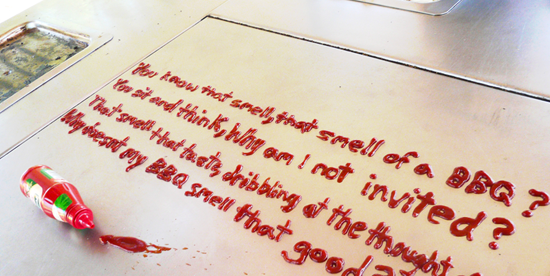 You know that smell, that smell of a BBQ?
You sit and think, Why am I not invited?
That smell that that's dribbling at the thought
Why doesnt my BBQ smell that good